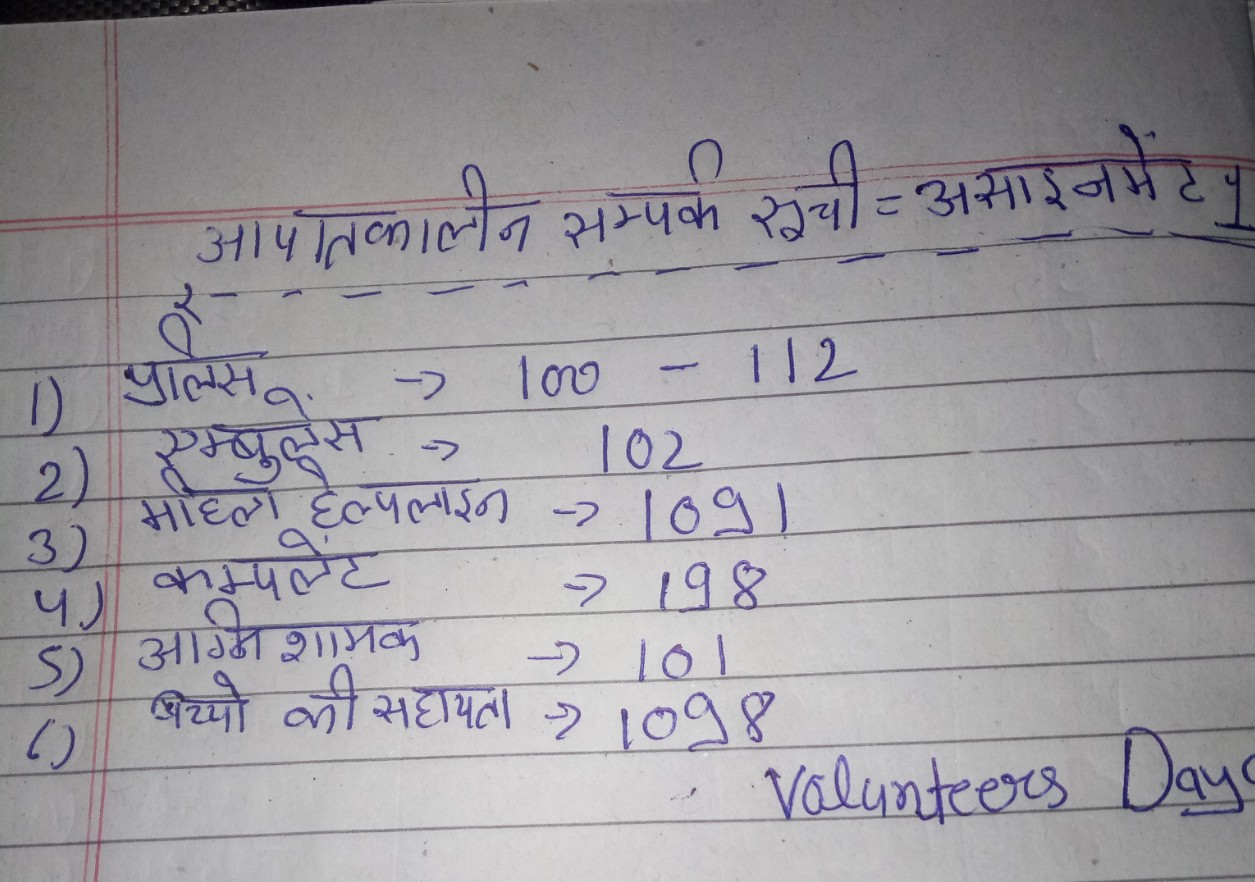 आपातकालीन सम्पर्क सूची = असाइनमेंट
1) पुलिस → 100 - 112
2) एम्बुलेंस → 102
3) महिला हेल्पलाइन → 1091
4) कम्पलेंट → 198
5) अग्नि शामक → 101
6) बच्चो की सहायता → 1098
Valunteers Days